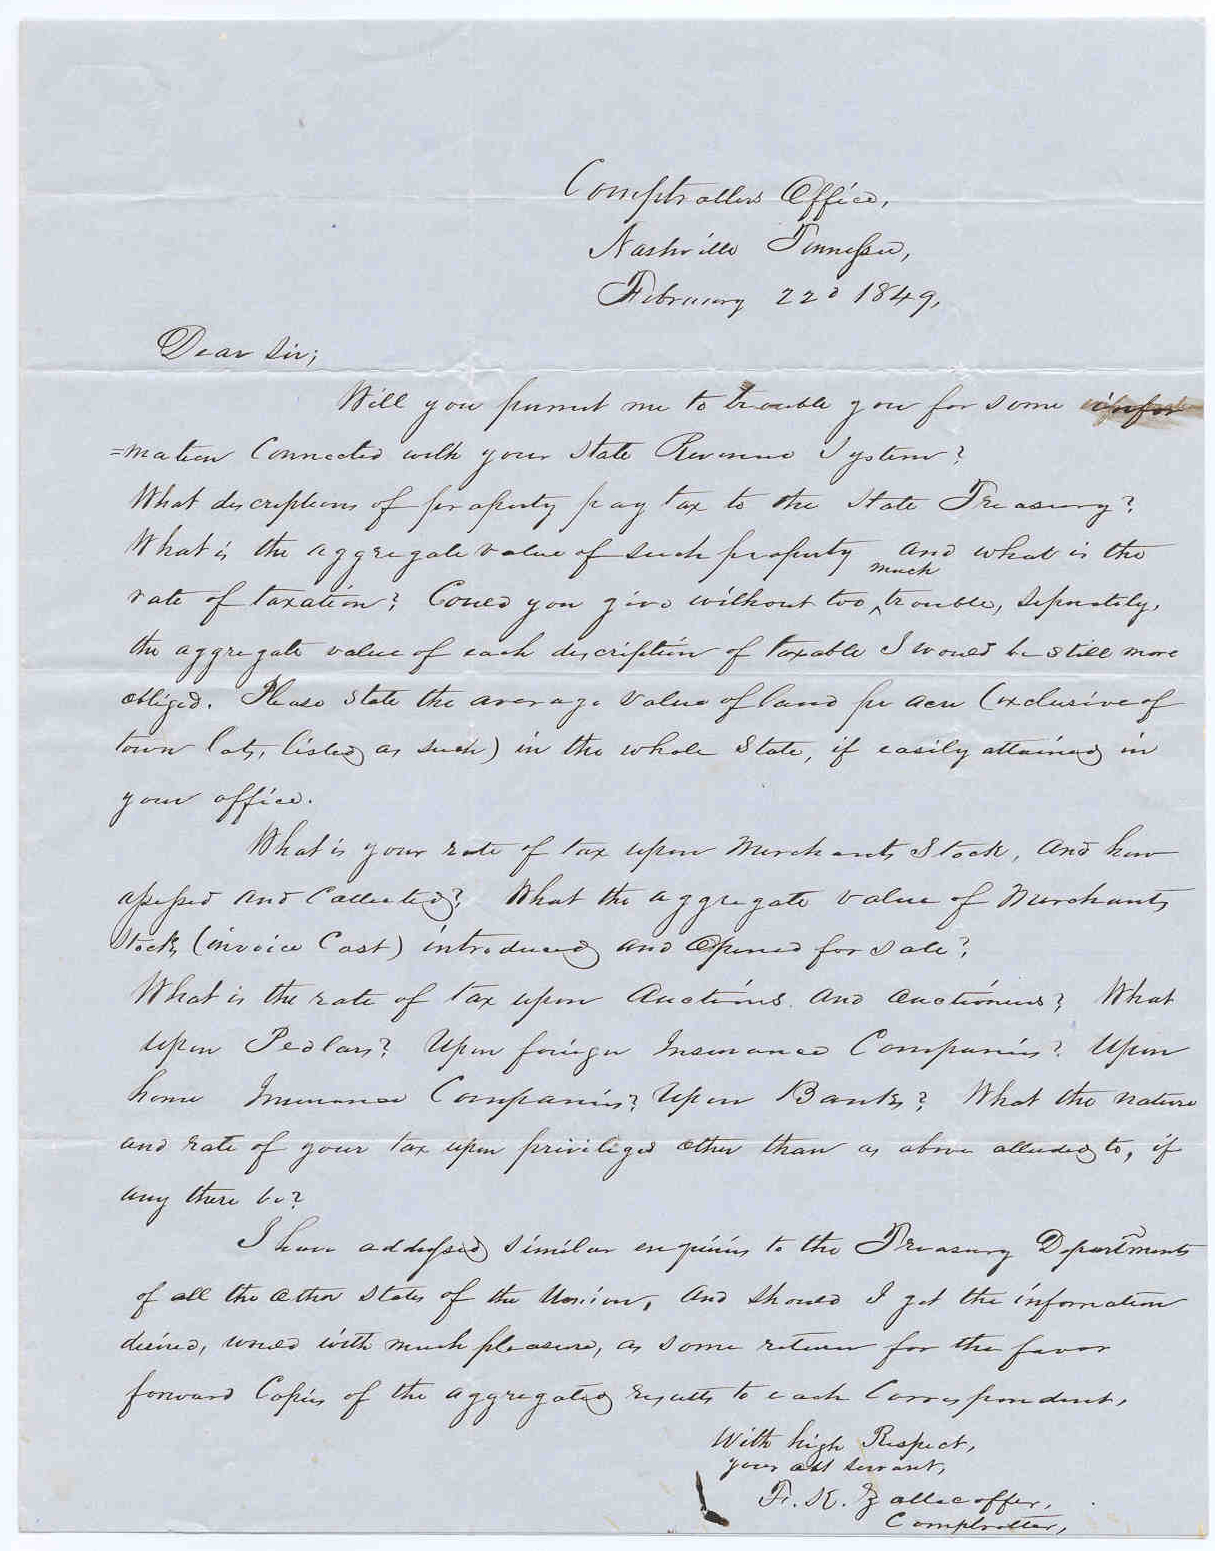 Comptrollers Office,
Nashville Tennessee,
February 22d 1849,
Dear Sir;
Will you permit me to trouble you for some infor
=mation Connected with your State Revenue System?
What descriptions of property pay tax to the State Treasury?
What is the aggregate value of such property and what is the
rate of taxation? Could you give without too much trouble, seperately,
the aggregate value of each description of taxable I would be still more
obliged. Please state the average value of land per acre (exclusive of
town lots, listed as such) in the whole State, if easily attained in
your office.
What is your rate of tax upon Merchants Stock, and how
assessed and Collected? What the aggregate value of Merchants
Stocks (invoice Cost) introduced and Opened for sale?
What is the rate of tax upon Auctions and auctioneers? What
upon Pedlars? Upon foreign Insurance Companies? Upon
home Insurance Companies? Upon Banks? What the nature
and rate of your tax upon privileges other than as above alluded to, if
any there be?
I have addressed similar enquiries to the Treasury Departments
of all the other States of the Union, and should I get the information
desired, would with much pleasure, as some return for the favor
forward Copies of the aggregated results to each Correspondent,
With high Respect,
your obt servant,
F. K. Zollicoffer,
Comptroller,